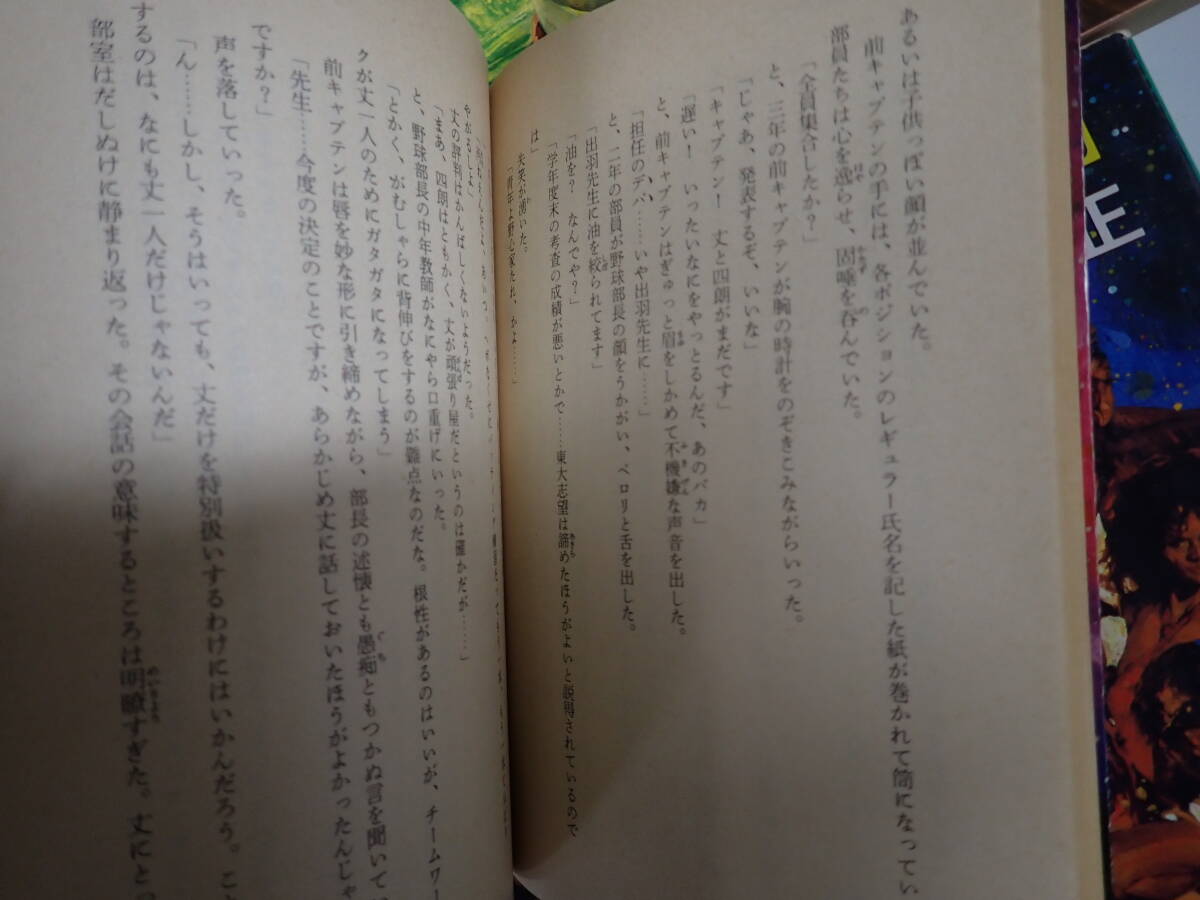 あるいは子供っぽい顔が並んでいた。
前キャプテンの手には、各ポジションのレギュラー氏名を記した紙が巻かれて筒になってい
部員たちは心を逸らせ、固唾を呑んでいた。
「全員集合したか？」
と、三年の前キャプテンが腕の時計をのぞきこみながらいった。
「じゃあ、発表するぞ、いいな」
「キャプテン！　丈と四朗がまだです」
「遅い！　いったいなにをやっとるんだ、あのバカ」
と、前キャプテンはぎゅっと眉をしかめて不機嫌な声音を出した。
「担任のデバ……いや出羽先生に……」
と、二年の部員が野球部長の顔をうかがい、ペロリと舌を出した。
「出羽先生に油を絞られてます」
「油を？　なんでや？」
「学年度末の考査の成績が悪いとかで……東大志望は諦めたほうがよいと説得されているので
は」
失笑が湧いた。
「青年よ野心家たれ、かよ……」
やがるしよ」
丈の評判はかんばしくないようだった。
「まあ、四朗はともかく、丈が頑張り屋だというのは確かだが……」
と、野球部長の中年教師がなにやら口重げにいった。
「とかく、がむしゃらに背伸びをするのが難点なのだな。根性があるのはいいが、チームワー
クが丈一人のためにガタガタになってしまう」
前キャプテンは唇を妙な形に引き締めながら、部長の述懐とも愚痴ともつかぬ言を聞いて
「先生……今度の決定のことですが、あらかじめ丈に話しておいたほうがよかったんじゃ
ですか？」
声を落していった。
「ん……しかし、そうはいっても、丈だけを特別扱いするわけにはいかんだろう。こ
するのは、なにも丈一人だけじゃないんだ」
部室はだしぬけに静まり返った。その会話の意味するところは明瞭すぎた。丈にとっ
正